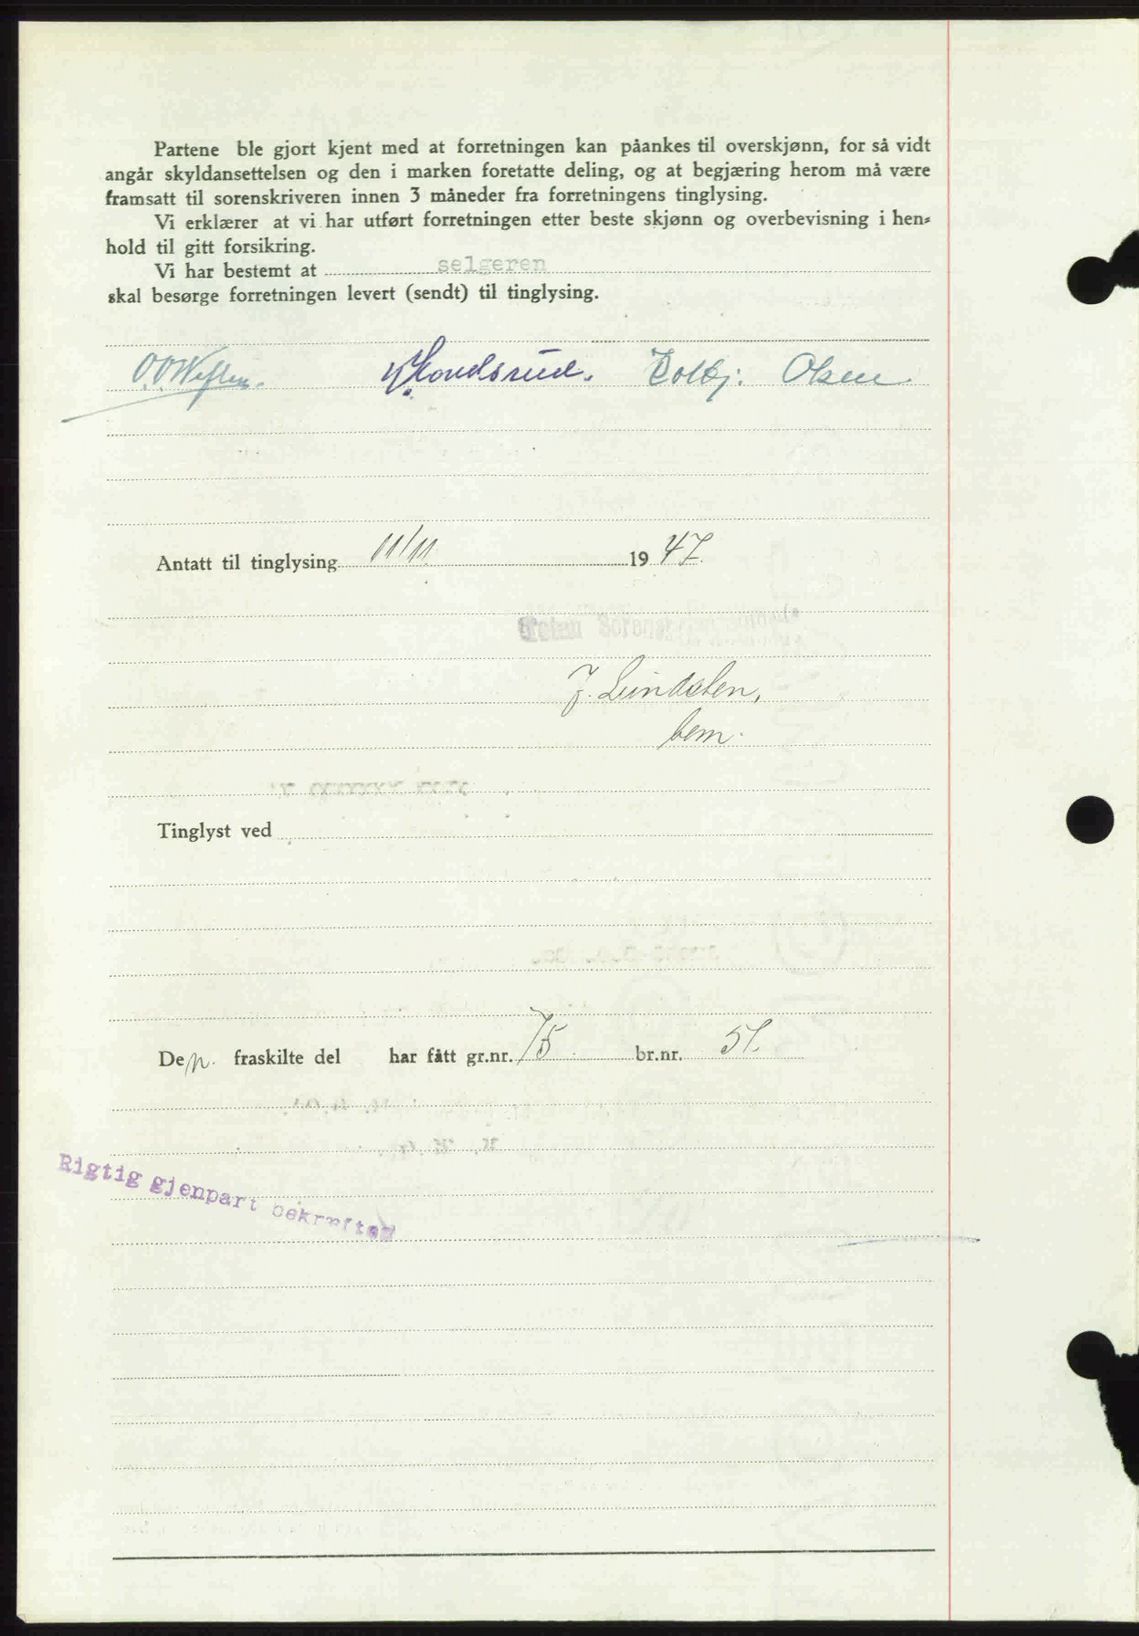 Partene ble gjort kjent med at forretningen kan påankes til overskjønn, for så vidt
angår skyldansettelsen og den i marken foretatte deling, og at begjæring herom må være
framsatt til sorenskriveren innen 3 måneder fra forretningens tinglysing.
Vi erklærer at vi har utført forretningen etter beste skjønn og overbevisning i hen-
hold til gitt forsikring.
Vi har bestemt at selgeren
skal besørge forretningen levert (sendt) til tinglysing.
Kolbj. Olsen
Antatt til tinglysing 11/11 1947.
Toten
J. Lundsten,
bem.
Tinglyst ved
Den fraskilte del har fått gr.nr. 75 br.nr. 51.
Rigtig gjenpart bekreftes